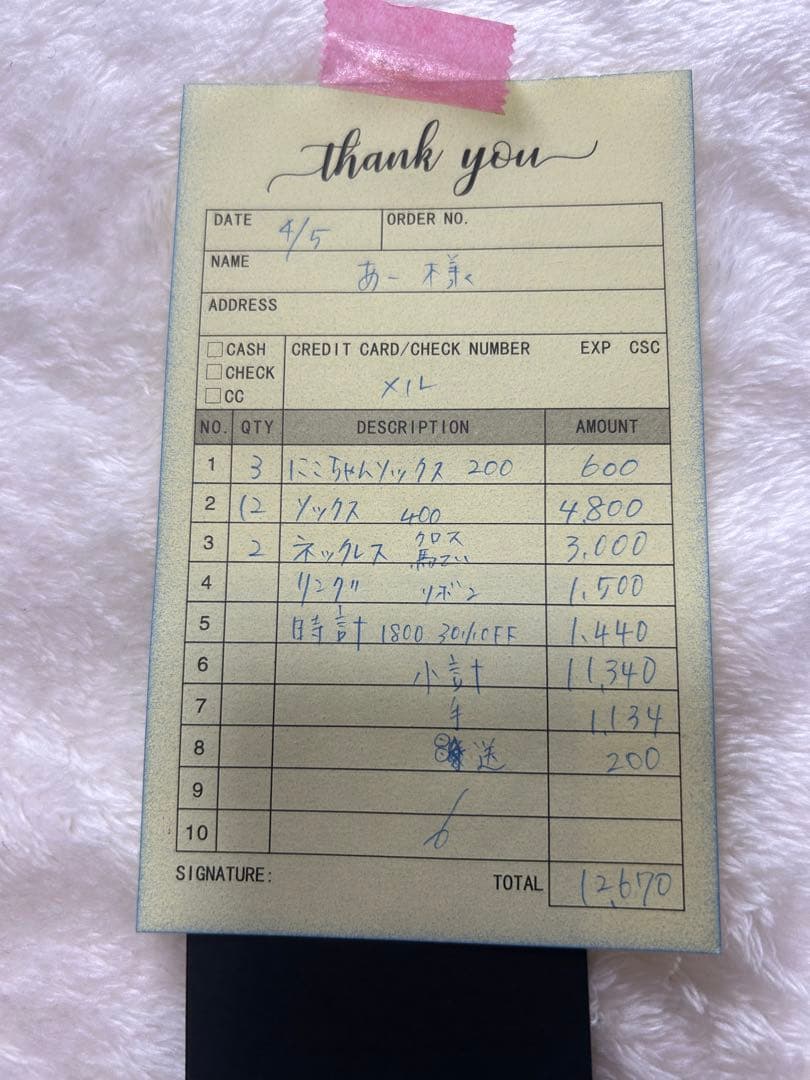 thank you
DATE 4/5 ORDER NO.
NAME あー様
ADDRESS
CASH CREDIT CARD/CHECK NUMBER EXP CSC
CHECK メル
CC
NO. QTY DESCRIPTION AMOUNT
1 3 にこちゃんソックス 200 600
2 12 ソックス 400 4,800
3 2 ネックレス クロス 馬てい 3,000
4 リング リボン 1,500
5 時計 1800 30%OFF 1,440
6 小計 11,340
7 手 1,134
8 送 200
9
10
SIGNATURE: TOTAL 12,670